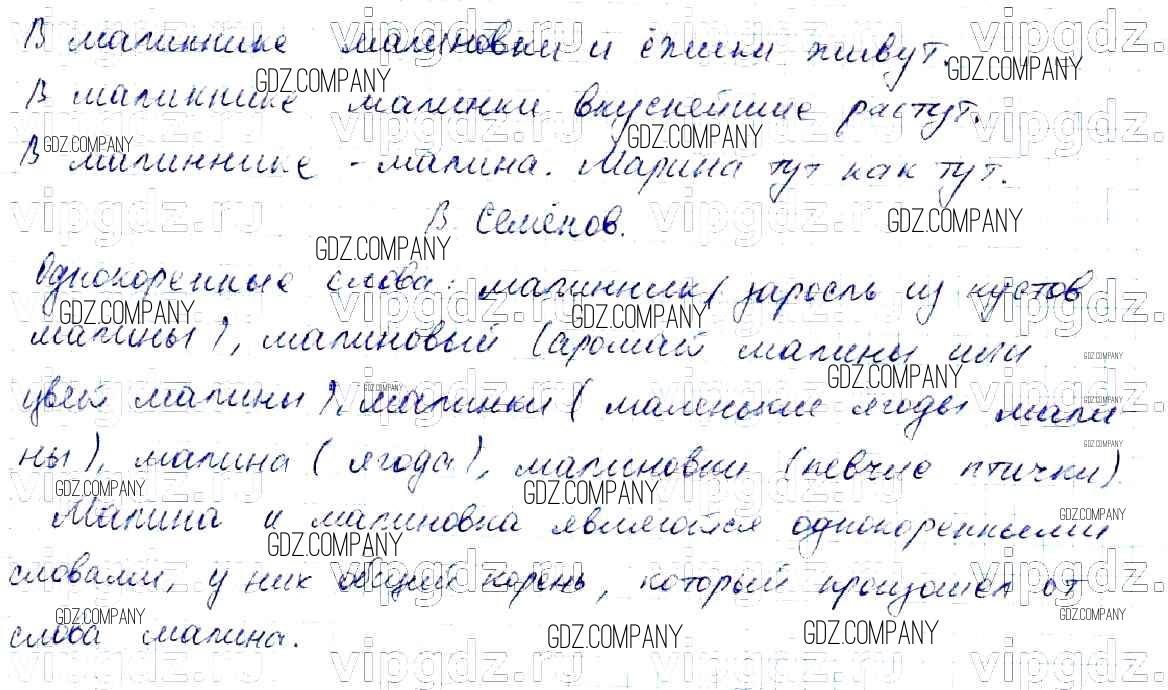 В малиннике малиновки и ёжики живут.
В малиннике малинки вкуснейшие растут.
В малиннике - малина. Марина тут как тут.
В. Семёнов.
Однокоренные слова: малинник (заросль из кустов
малины), малиновый (аромат малины или
цвет малины), малинки (маленькие ягоды мали-
ны), малина (ягода), малиновки (певчие птички).
Малина и малиновка являются однокоренными
словами, у них общий корень, который произошел от
слова малина.